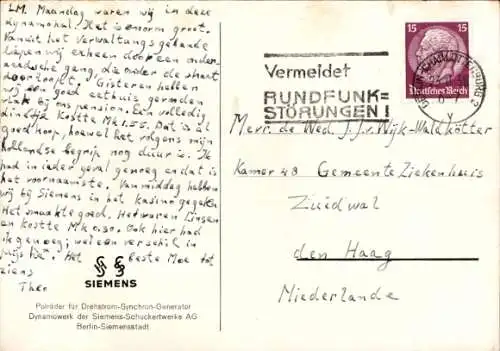 L.M. Maandag waren wij in deze
dynamohal. Het is enorm groot.
Vanuit het Verwaltungsgebäude
liepen wij erheen door een onder-
aardsche gang, die onder de straat
doorloopt. Gisteren hebben
wij een goed eethuis gevonden
vlak bij ons pension. Een volledig
diner kostte Mk 1.55. Dat is al
goedkoop, hoewel het volgens mijn
Hollandse begrip nog duur is. Ik
had in ieder geval genoeg en dat is
het voornaamste. Van middag hebben
wij bij Siemens in het kasino gegeten
Het smaakte goed. Het waren Linsen
en kostte Mk 0.30. Ook hier had
ik genoeg; wel een verschil in
prijs hè. Het beste Moe tot
ziens
Theo
SIEMENS
Polräder für Drehstrom-Synchron-Generator
Dynamowerk der Siemens-Schuckertwerke AG
Berlin-Siemensstadt
Vermeidet
RUNDFUNK=
STÖRUNGEN!
15 15
Deutsches Reich
Mevr. de Wed. J. J. v Wijk-Waldkötter
Kamer 48 Gemeente Ziekenhuis
Zuidwal
den Haag
Niederlande